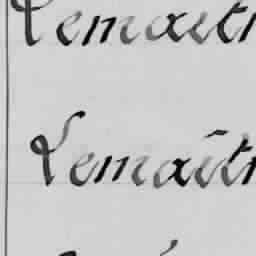 Lemaitr
Lemaîtr